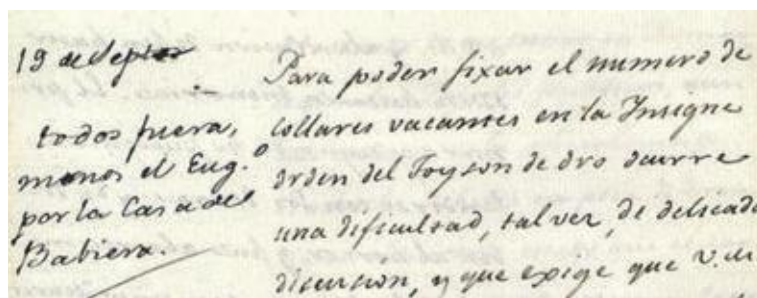 19 de Septre
todos fuera,
menos el Eug.º
por la Casa del
Babiera.
Para poder fixar el numero de
collares vacantes en la Insigne
orden del Toyson de oro ocurre
una dificultad, tal vez, de delicada
discusion, y que exige que V.M.